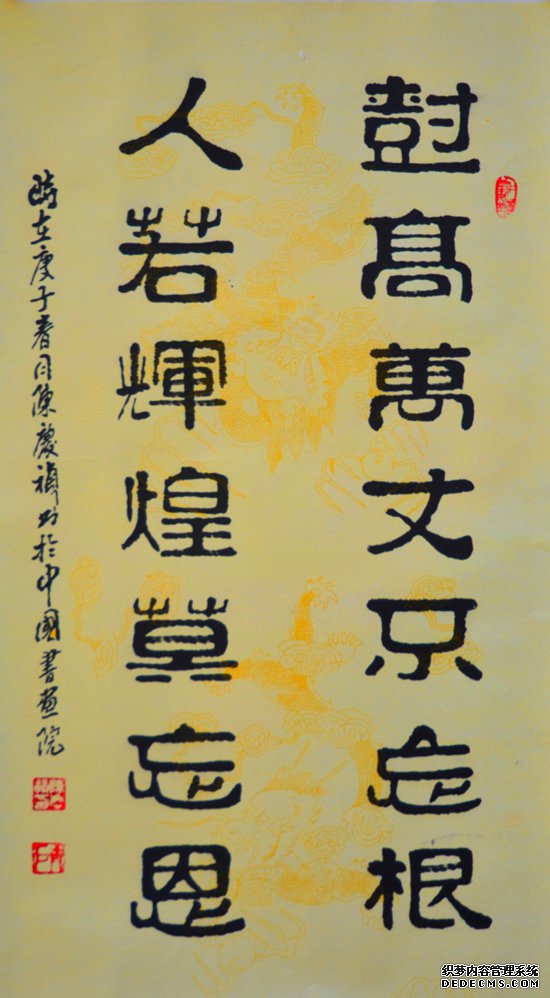 尌髙萬丈不忘根
人若輝煌莫忘恩
時在庚子春月陳慶禎书於中國書画院
织梦内容管理系统
DEDECMS.COM